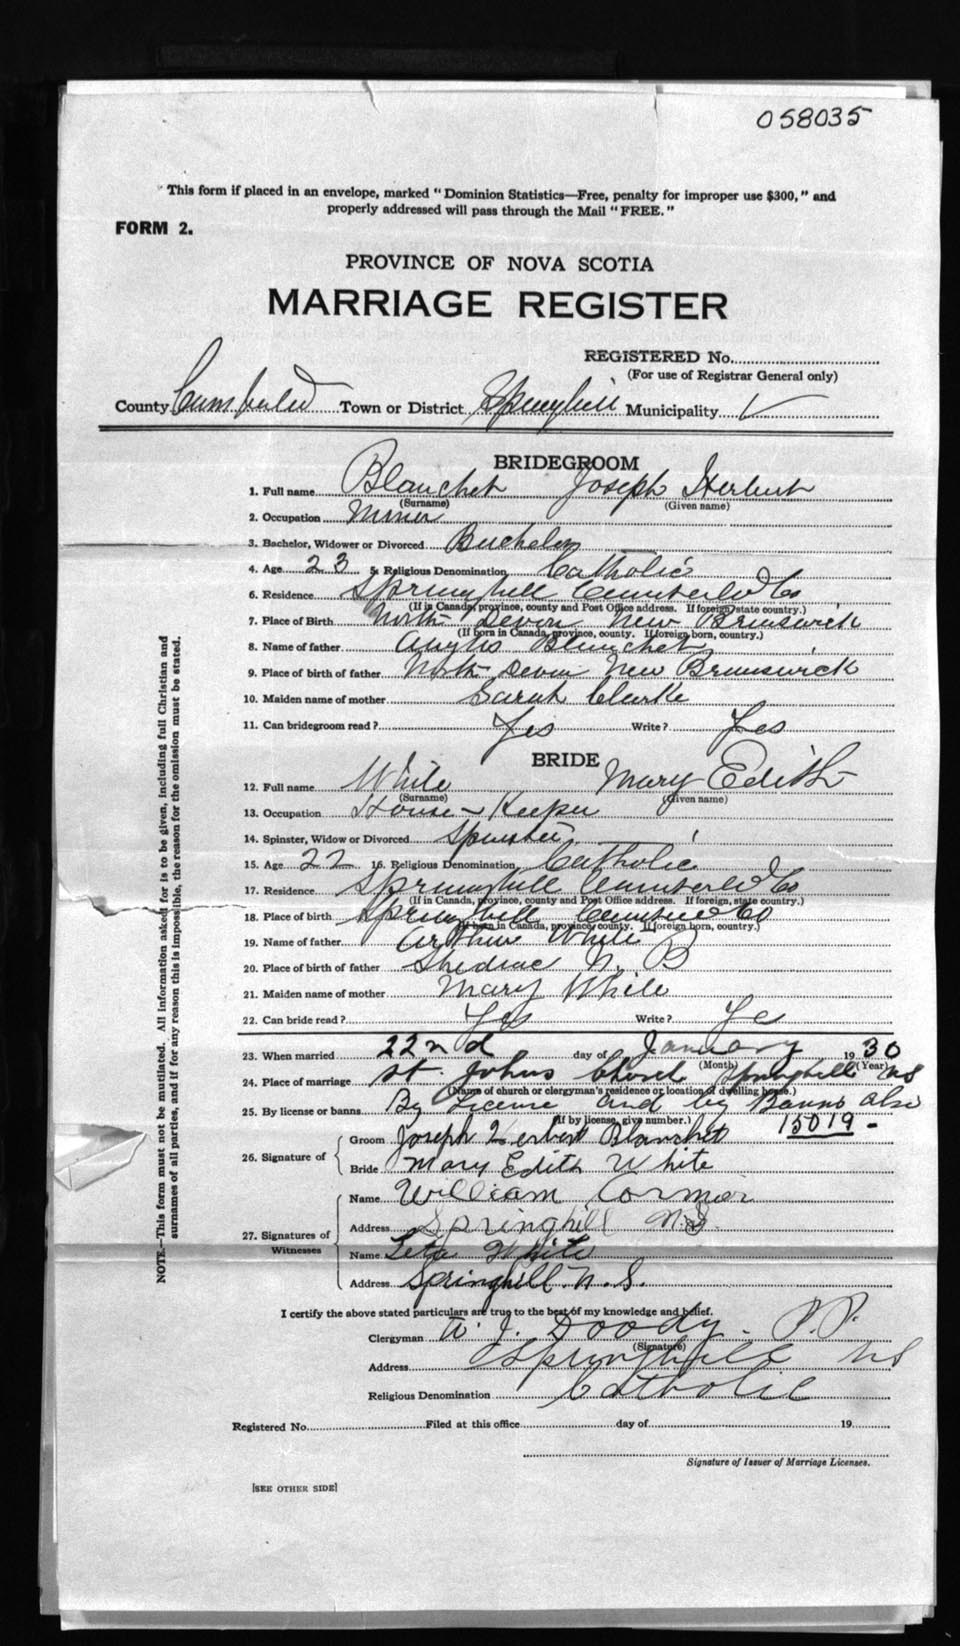 058035
This form if placed in an envelope, marked "Dominion Statistics—Free, penalty for improper use $300," and
properly addressed will pass through the Mail "FREE."
FORM 2.
PROVINCE OF NOVA SCOTIA
MARRIAGE REGISTER
REGISTERED No.
(For use of Registrar General only)
County Cumberland Town or District Springhill Municipality
BRIDEGROOM
1. Full name Blanchet Joseph Herbert
(Surname) (Given name)
2. Occupation Miner
3. Bachelor, Widower or Divorced Bachelor
4. Age 23 5. Religious Denomination Catholic
6. Residence Springhill Cumberland Co
(If in Canada, province, county and Post Office address. If foreign, state country.)
7. Place of Birth North Devon New Brunswick
(If born in Canada, province, county. If foreign born, country.)
8. Name of father Blanchet
9. Place of birth of father North Devon New Brunswick
10. Maiden name of mother Sarah Clarke
11. Can bridegroom read? Yes Write? Yes
BRIDE
12. Full name White Mary Edith
(Surname) (Given name)
13. Occupation House-Keeper
14. Spinster, Widow or Divorced Spinster
15. Age 22 16. Religious Denomination Catholic
17. Residence Springhill Cumberland Co
(If in Canada, province, county and Post Office address. If foreign, state country.)
18. Place of birth Springhill Cumberland Co
(If born in Canada, province, county. If foreign born, country.)
19. Name of father Arthur White
20. Place of birth of father Shediac N. B
21. Maiden name of mother Mary White
22. Can bride read? Yes Write? Ye
23. When married 22nd day of January 1930
(Month) (Year)
24. Place of marriage St. Johns Church Springhill NS
(Name of church or clergyman's residence or location of dwelling house.)
25. By license or banns By License and by Banns also
(If by license, give number.) 15019-
26. Signature of Groom Joseph Herbert Blanchet
Bride Mary Edith White
27. Signatures of Witnesses Name William Cormier
Address Springhill N.S.
Name Leta White
Address Springhill. N. S.
I certify the above stated particulars are true to the best of my knowledge and belief.
Clergyman W. J. Doody. P.P.
(Signature)
Address Springhill NS
Religious Denomination Catholic
Registered No. Filed at this office day of 19
Signature of Issuer of Marriage Licenses.
[SEE OTHER SIDE]
NOTE.—This form must not be mutilated. All information asked for is to be given, including full Christian and
surnames of all parties, and if for any reason this is impossible, the reason for the omission must be stated.